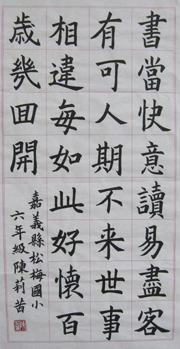 書當快意讀易盡客
有可人期不来世事
相違每如此好懷百
歳幾囬開
嘉義縣松梅國小
六年級陳莉